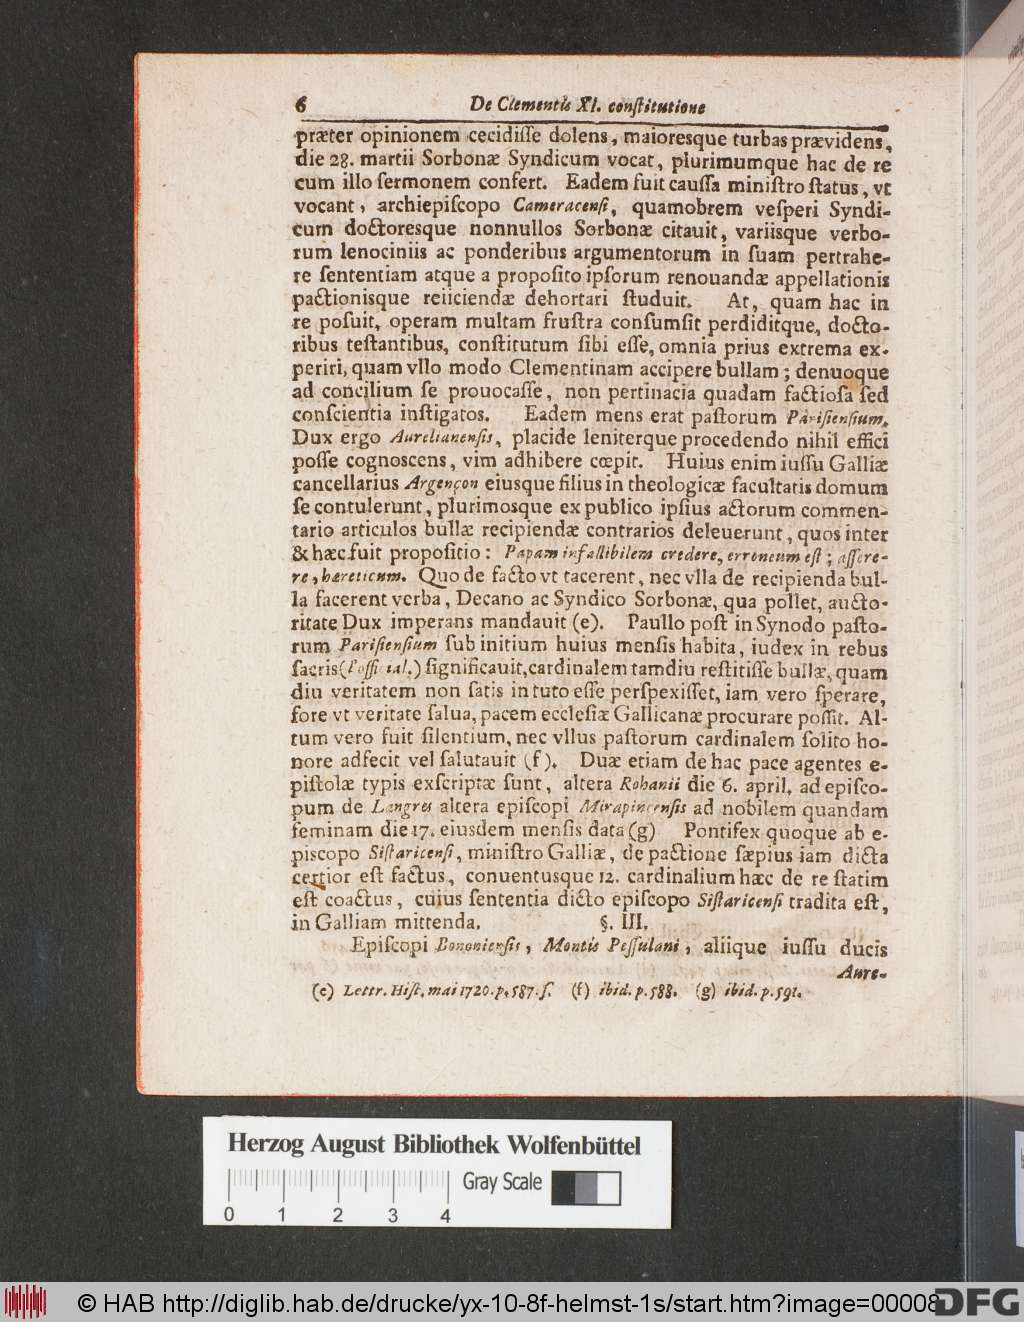 6 De Clementis XI. conſtitutione
præter opinionem cecidiſſe dolens, maioresque turbas prævidens,
die 28. martii Sorbonæ Syndicum vocat, plurimumque hac de re
cum illo ſermonem confert. Eadem fuit cauſſa miniſtro ſtatus, vt
vocant, archiepiſcopo Cameracenſi, quamobrem veſperi Syndi-
cum doctoresque nonnullos Sorbonæ citauit, variisque verbo-
rum lenociniis ac ponderibus argumentorum in ſuam pertrahe-
re ſententiam atque a propoſito ipſorum renouandæ appellationis
pactionisque reiiciendæ dehortari ſtuduit. At, quam hac in
re poſuit, operam multam fruſtra conſumſit perdiditque, docto-
ribus teſtantibus, conſtitutum ſibi eſſe, omnia prius extrema ex-
periri, quam vllo modo Clementinam accipere bullam; denuoque
ad concilium ſe prouocaſſe, non pertinacia quadam factioſa ſed
conſcientia inſtigatos. Eadem mens erat paſtorum Pariſienſium.
Dux ergo Aurelianenſis, placide leniterque procedendo nihil effici
poſſe cognoscens, vim adhibere cœpit. Huius enim iuſſu Galliæ
cancellarius Argençon eiusque filius in theologicæ facultatis domum
ſe contulerunt, plurimosque ex publico ipſius actorum commen-
tario articulos bullæ recipiendæ contrarios deleuerunt, quos inter
& hæc fuit propoſitio: Papam infallibilem credere, erroneum eſt; aſſere-
re, hæreticum. Quo de facto vt tacerent, nec vlla de recipienda bul-
la facerent verba, Decano ac Syndico Sorbonæ, qua pollet, aucto-
ritate Dux imperans mandauit (e). Paullo poſt in Synodo paſto-
rum Pariſienſium ſub initium huius menſis habita, iudex in rebus
ſacris (l'official.) ſignificauit, cardinalem tamdiu reſtitiſſe bullæ, quam
diu veritatem non ſatis in tuto eſſe perſpexiſſet, iam vero ſperare,
fore vt veritate ſalua, pacem eccleſiæ Gallicanæ procurare poſſit. Al-
tum vero fuit ſilentium, nec vllus paſtorum cardinalem ſolito ho-
nore adfecit vel ſalutauit (f). Duæ etiam de hac pace agentes e-
piſtolæ typis exſcriptæ ſunt, altera Rohanii die 6. april. ad epiſco-
pum de Langres altera epiſcopi Mirapincenſis ad nobilem quandam
feminam die 17. eiusdem menſis data (g) Pontifex quoque ab e-
piscopo Siſtaricenſi, miniſtro Galliæ, de pactione ſæpius iam dicta
certior eſt factus, conuentusque 12. cardinalium hæc de re ſtatim
eſt coactus, cuius ſententia dicto epiſcopo Siſtaricenſi tradita eſt,
in Galliam mittenda. §. III.
Epiſcopi Bononienſis, Montis Peſſulani, aliique iuſſu ducis
Aure-
(e) Lettr. Hiſt. mai 1720. p. 587. ſ. (f) ibid. p. 588. (g) ibid. p. 591.
Herzog August Bibliothek Wolfenbüttel
Gray Scale
0 1 2 3 4
© HAB http://diglib.hab.de/drucke/yx-10-8f-helmst-1s/start.htm?image=00008
DFG